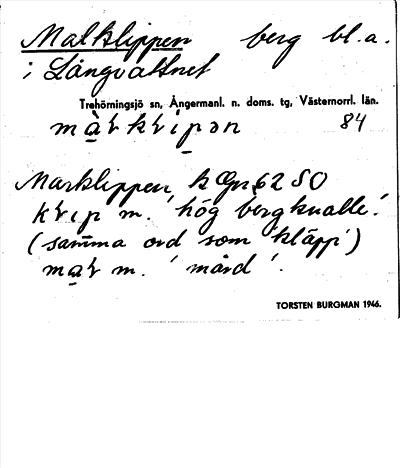 Malklippen berg bl.a.
i Långvattnet
Trehörningsjö sn, Ångermanl. n. doms. tg, Västernorrl. län.
84
Marklippen, k Gn 62 SO
m. 'hög bergknalle'.
(samma ord som 'kläpp')
m. 'mård'.
TORSTEN BURGMAN 1946.